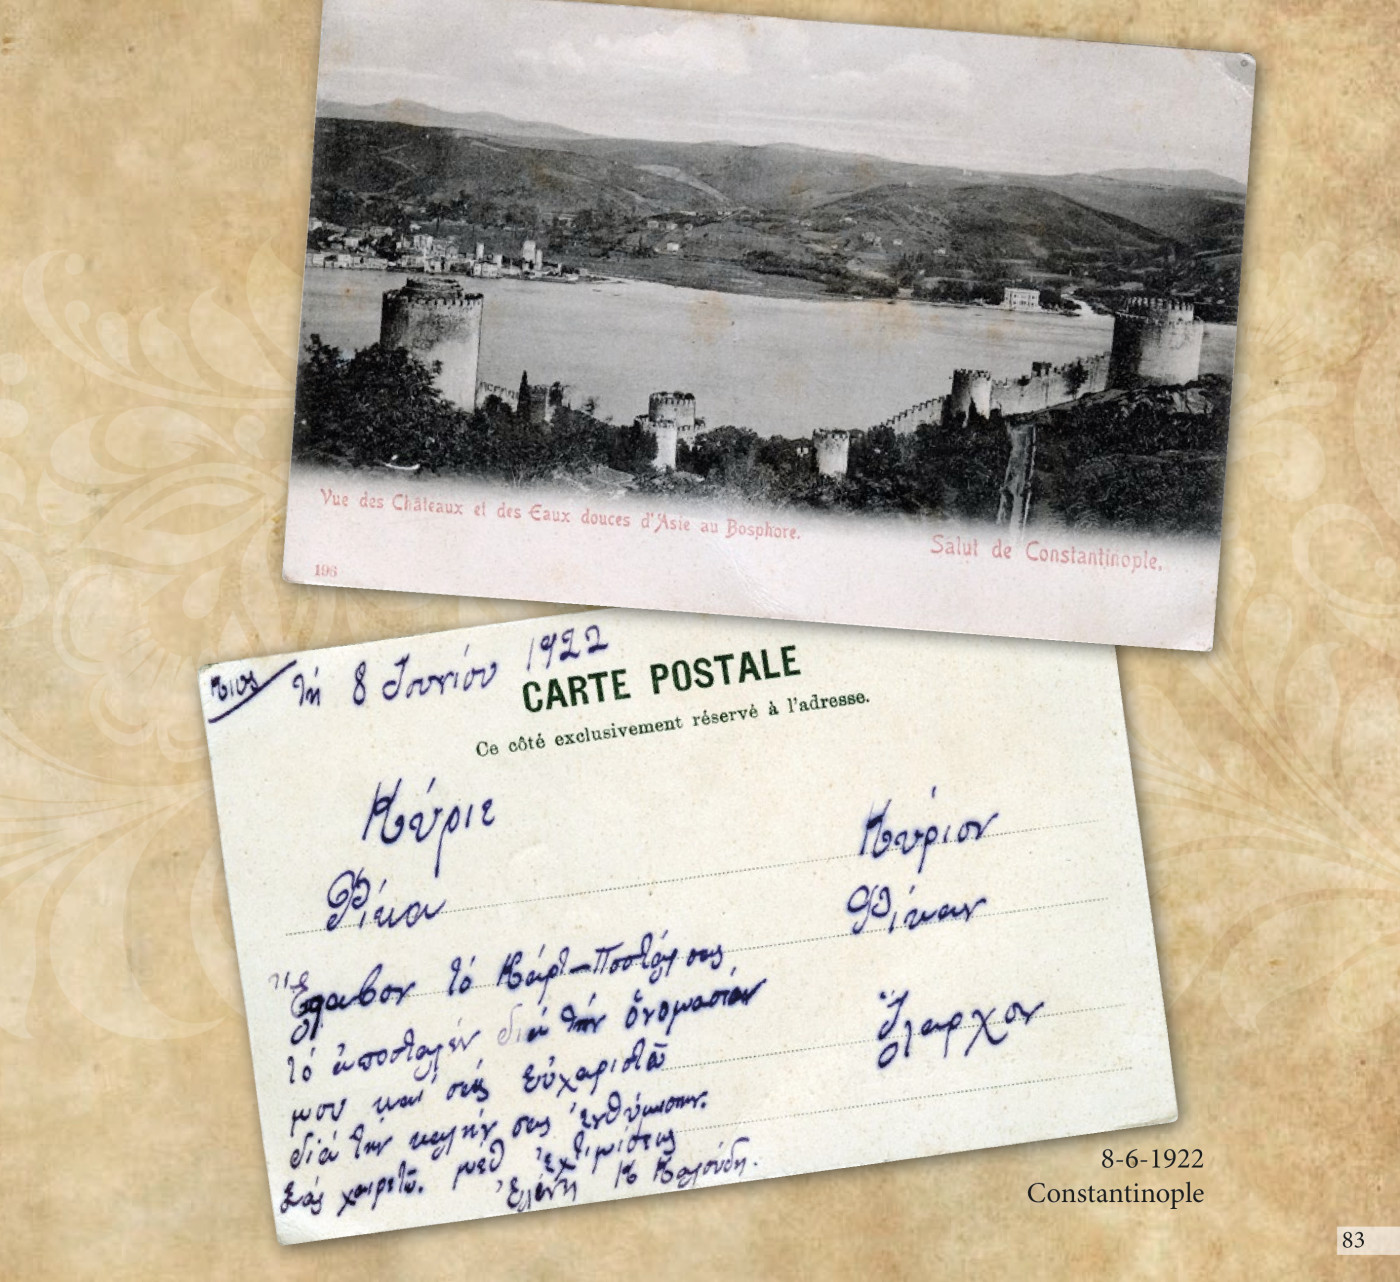 Vue des Châteaux et des Eaux douces d'Asie au Bosphore.
Salut de Constantinople.
196
Κίος τῇ 8 Ἰουνίου 1922
CARTE POSTALE
Ce côté exclusivement réservé à l'adresse.
Κύριε
Φίκα
Ἔλαβον τό Κάρτ-Ποστάλ σας
τό ἀποσταλέν διά τήν ὀνομασίαν
μου καί σᾶς εὐχαριστῶ
διά τήν καλήν σας ἐνθύμησιν.
Σᾶς χαιρετῶ. μεθ' ἐκτιμήσεως
Ἑλένη Κ
Κύριον
Φίκαν
Ἴλαρχον
8-6-1922
Constantinople
83